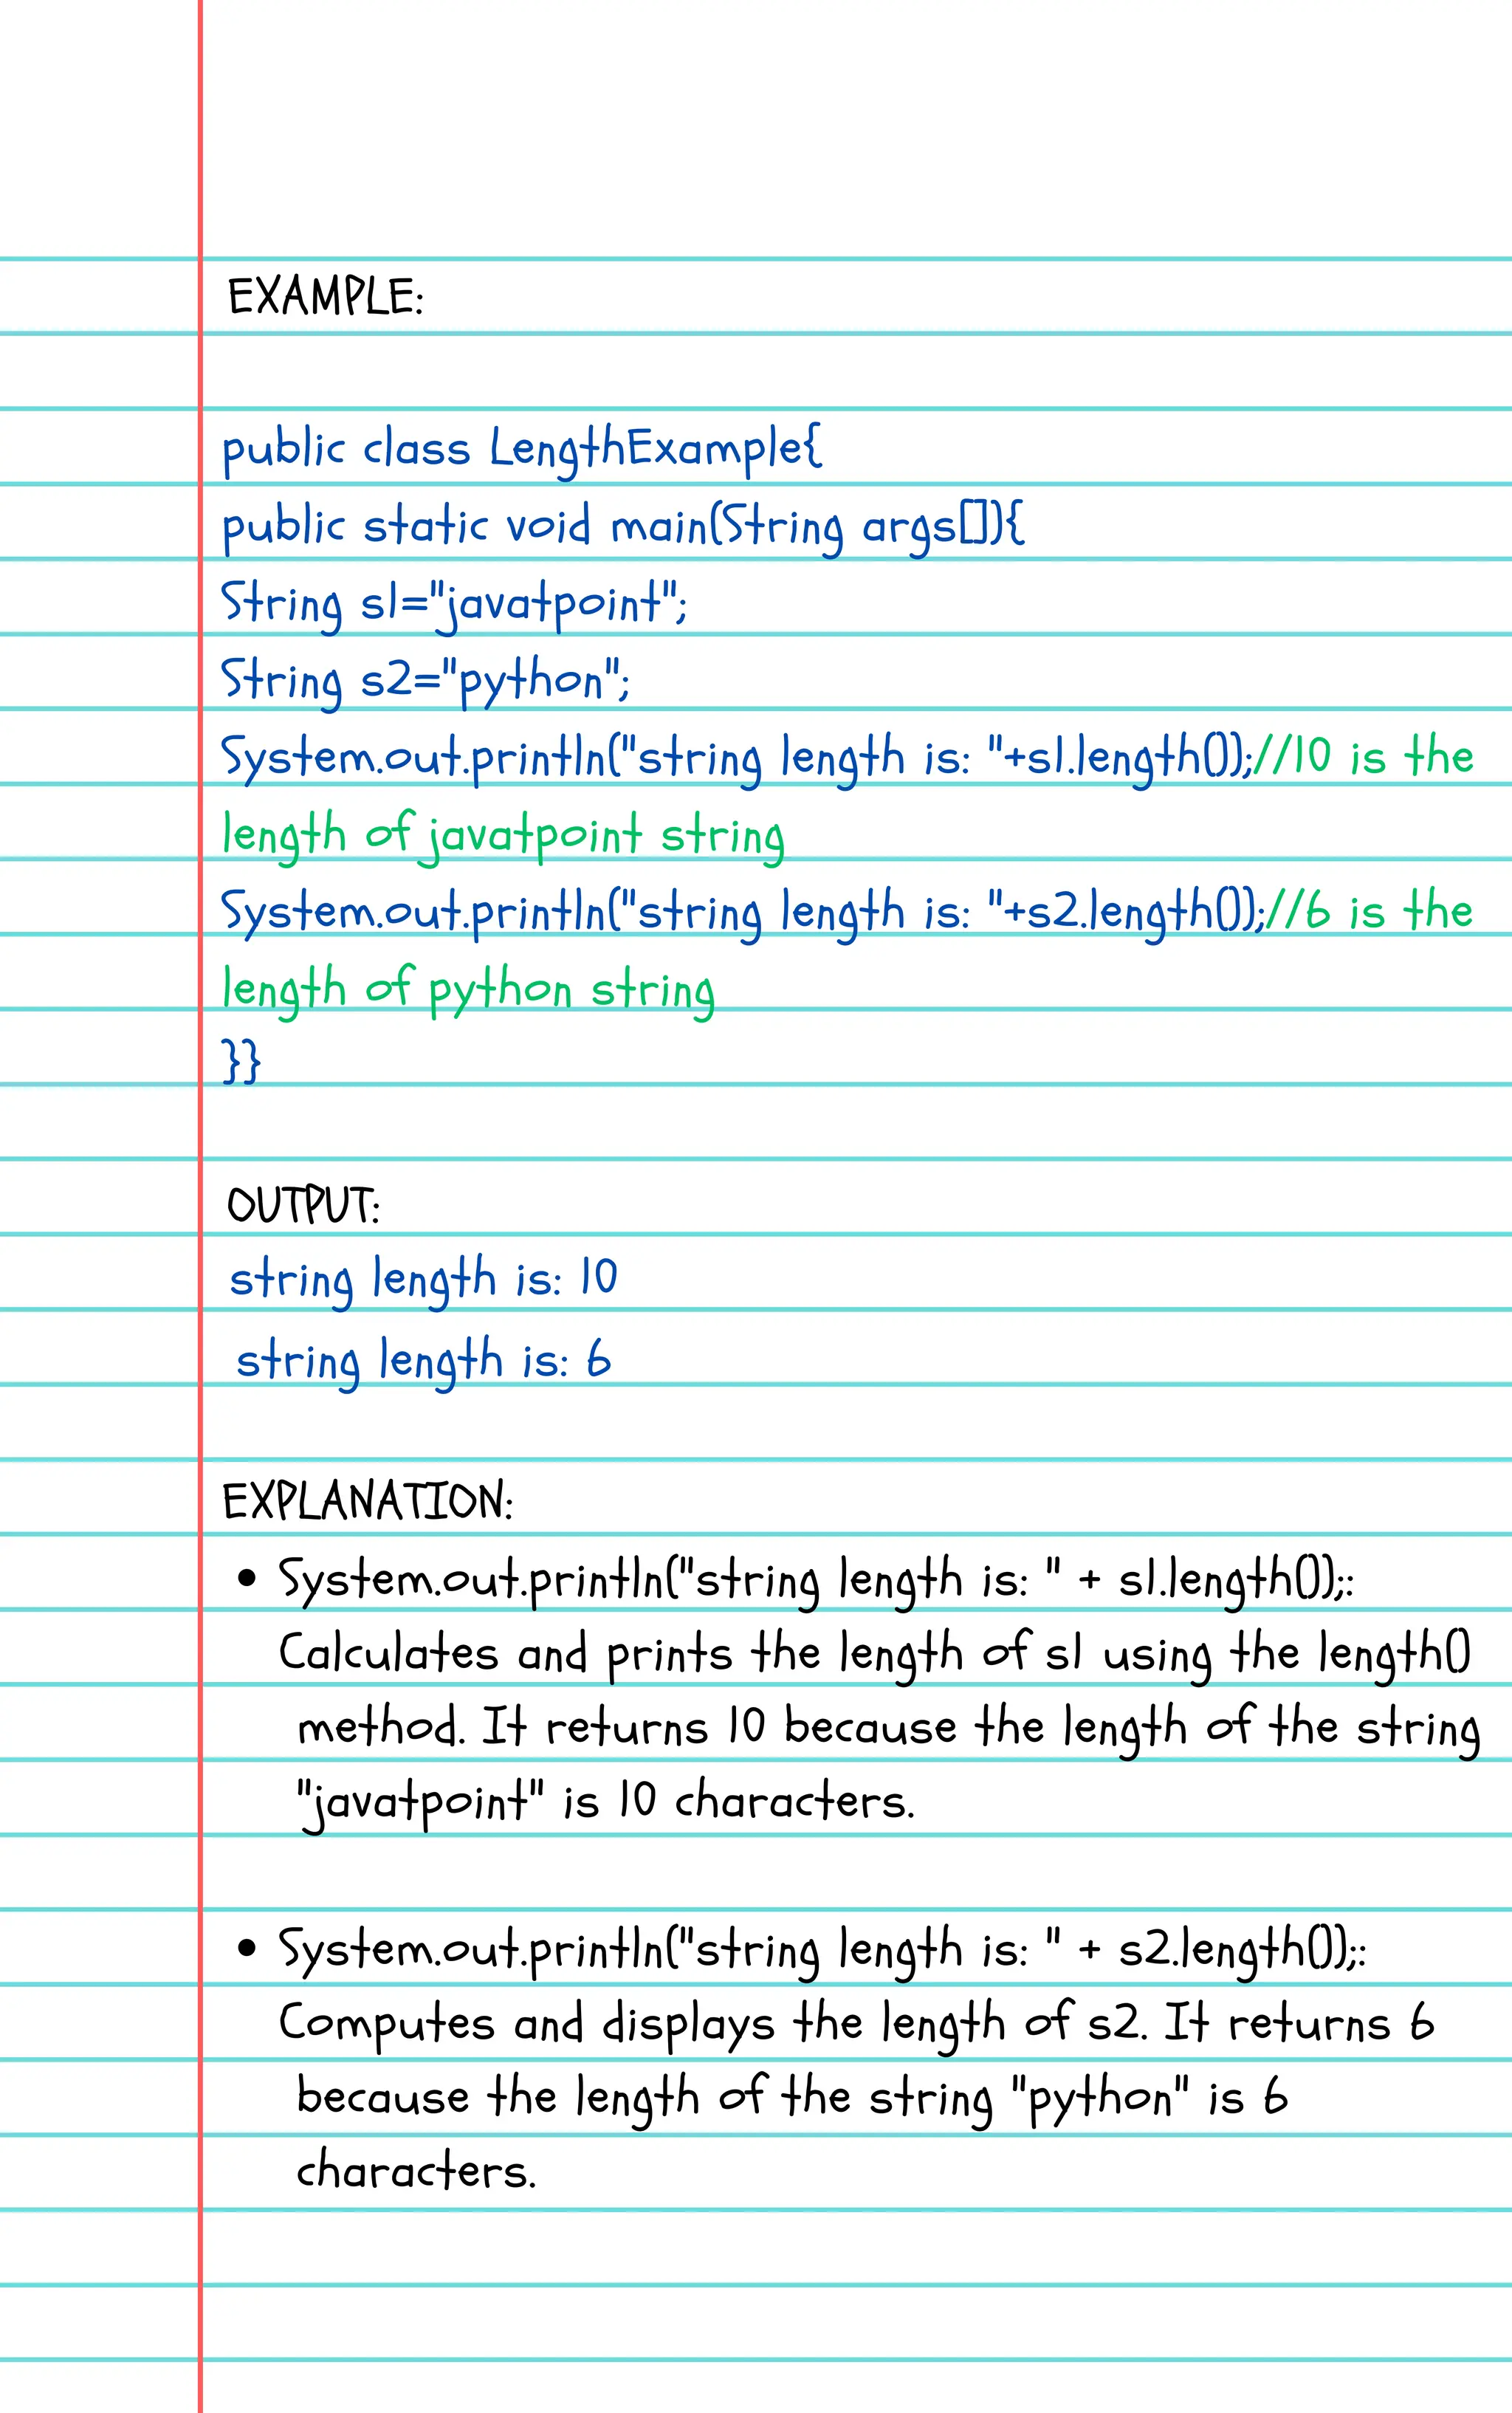 EXAMPLE:
public class LengthExample{
public static void main(String args[]){
String s1="javatpoint";
String s2="python";
System.out.println("string length is: "+s1.length());//10 is the
length of javatpoint string
System.out.println("string length is: "+s2.length());//6 is the
length of python string
}}
OUTPUT:
string length is: 10
string length is: 6
EXPLANATION:
• System.out.println("string length is: " + s1.length());:
Calculates and prints the length of s1 using the length()
method. It returns 10 because the length of the string
"javatpoint" is 10 characters.
• System.out.println("string length is: " + s2.length());:
Computes and displays the length of s2. It returns 6
because the length of the string "python" is 6
characters.